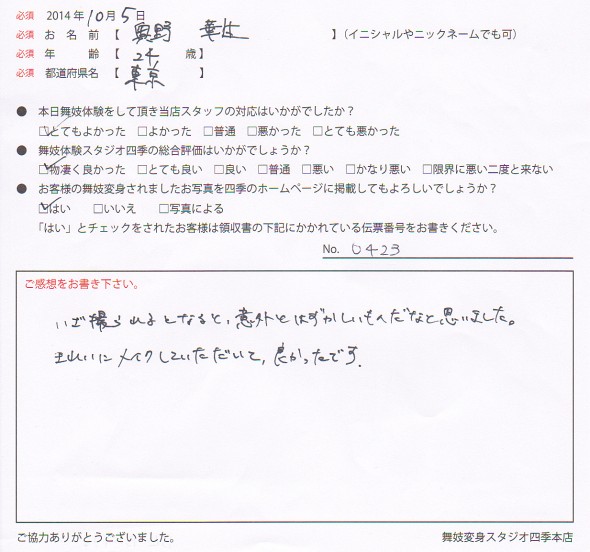 必須 2014年10月5日
必須 お名前【 奥野 】(イニシャルやニックネームでも可)
必須 年齢【 24 歳】
必須 都道府県名【 東京 】
● 本日舞妓体験をして頂き当店スタッフの対応はいかがでしたか?
☑とてもよかった □よかった □普通 □悪かった □とても悪かった
● 舞妓体験スタジオ四季の総合評価はいかがでしょうか?
☑物凄く良かった □とても良い □良い □普通 □悪い □かなり悪い □限界に悪い二度と来ない
● お客様の舞妓変身されましたお写真を四季のホームページに掲載してもよろしいでしょうか?
☑はい □いいえ □写真による
「はい」とチェックをされたお客様は領収書の下記にかかれている伝票番号をお書きください。
No. 0423
ご感想をお書き下さい。
いざ撮られるとなると、意外とはずかしいもんだなと思いました。
きれいにメイクしていただいて、良かったです.
ご協力ありがとうございました。
舞妓変身スタジオ四季本店